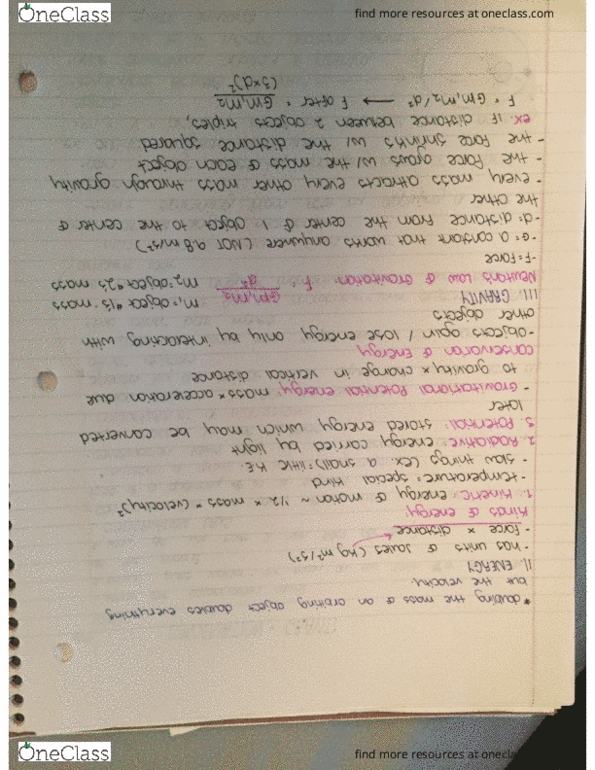 OneClass
find more resources at oneclass.com
* doubling the mass of an orbiting object doubles everything
but the velocity
II. ENERGY
- has units of joules (kg m²/s²)
- force × distance
Kinds of energy
1. Kinetic: energy of motion ~ 1/2 × mass × (velocity)²
- temperature: special kind
- slow things (ex. a snail): little K.E.
2. Radiative: energy carried by light
3. Potential: stored energy which may be converted
later
- Gravitational Potential energy: mass × acceleration due
to gravity × change in vertical distance
conservation of energy
- Objects again / lose energy only by interacting with
other objects
III. GRAVITY
Newtons Law of Gravitation: F Gm₁m₂/d² m₁= object #1's mass
m₂= object #2's mass
- F = Force
- G = a constant that works anywhere (NOT 9.8 m/s²)
- d = distance from the center of 1 object to the center of
the other
- every mass attracts every other mass through gravity
- the force grows w/ the mass of each object
- the force shrinks w/ the distance squared
ex. if distance between 2 objects triples,
F = Gm₁m₂/d² → F after = Gm₁m₂/(3×d)²
OneClass
find more resources at oneclass.com